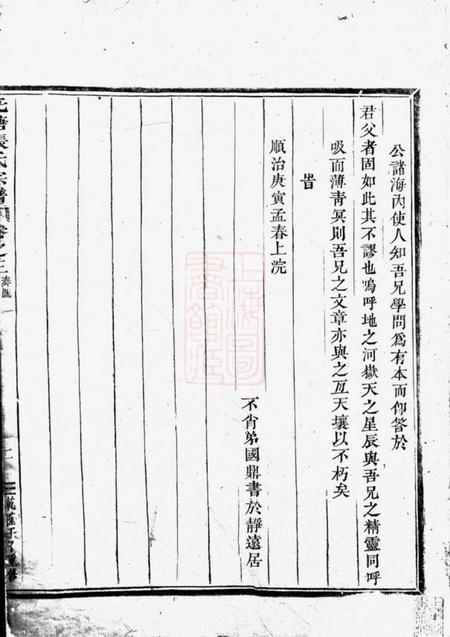 公諸海內使人知吾兄學問爲有本而仰答於
君父者固如此其不謬也嗚呼地之河嶽天之星辰與吾兄之精靈同呼
吸而薄靑冥則吾兄之文章亦與之亙天壤以不朽矣
旹
順治庚寅孟春上浣
不肖弟國鼎書於靜遠居
張氏宗譜